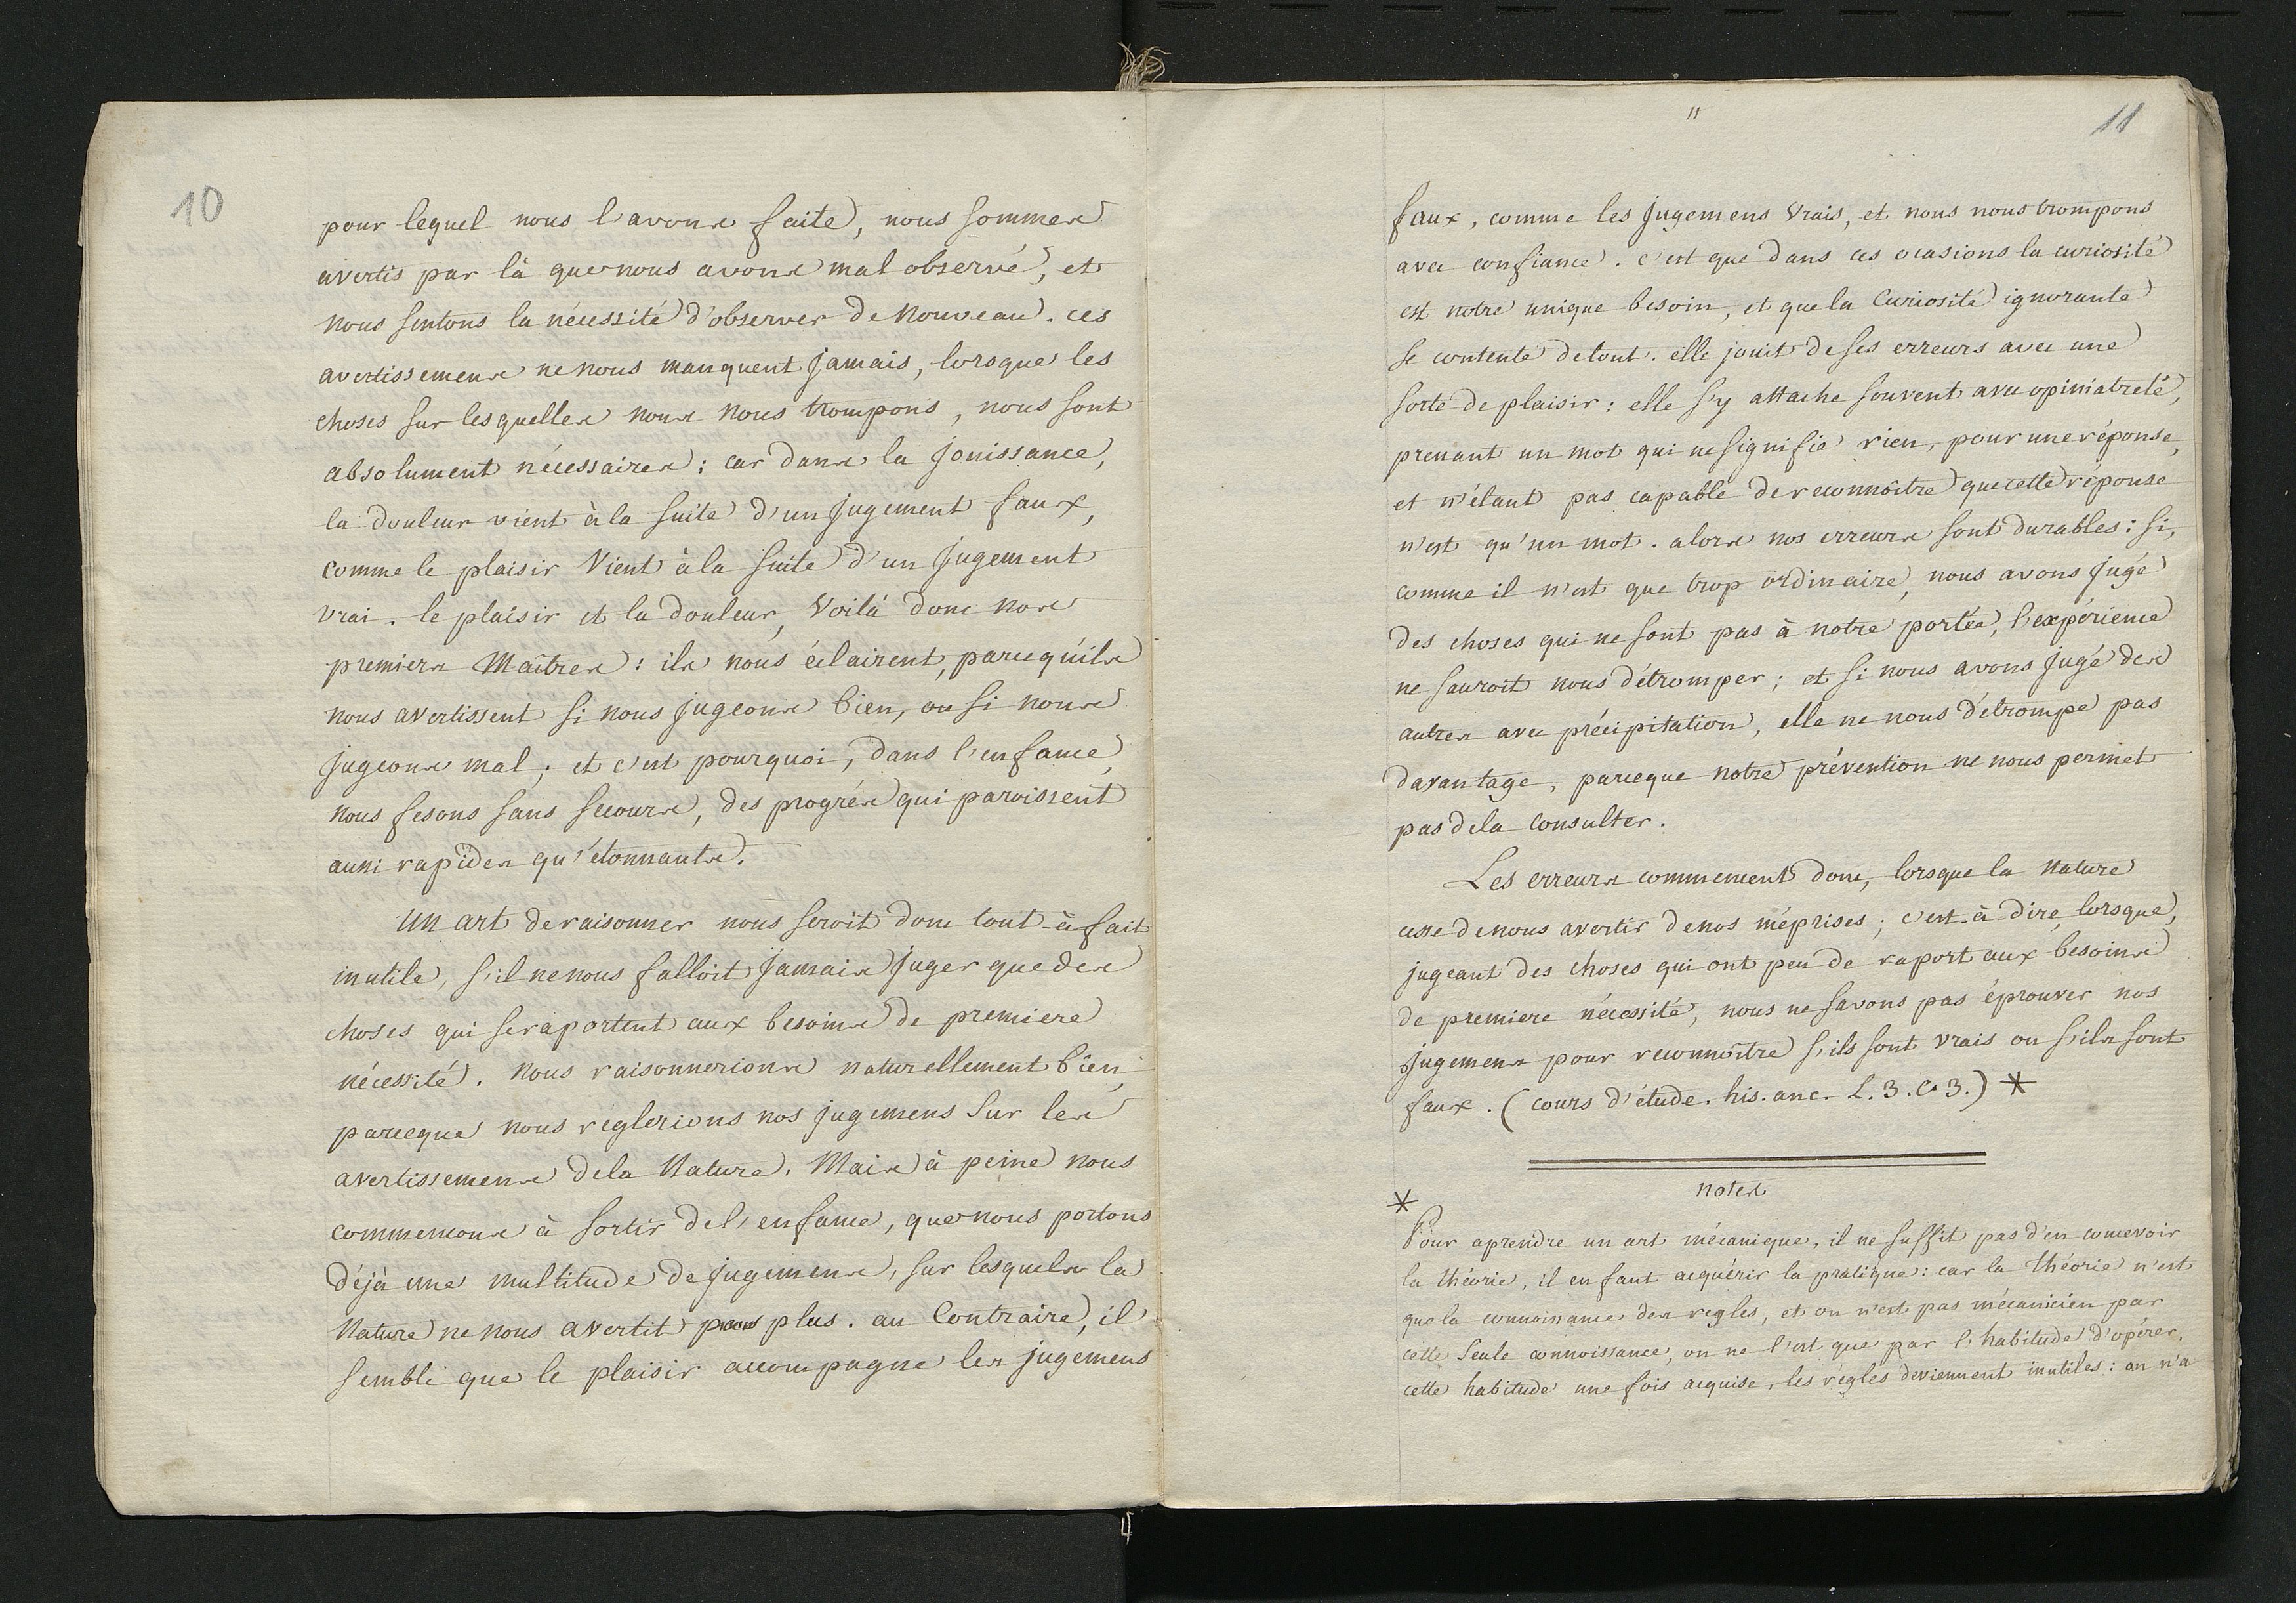 10
pour lequel nous l'avons faite, nous sommes
avertis par là que nous avons mal observé, et
nous sentons la nécessité d'observer de nouveau. ces
avertissemens ne nous manquent jamais, lorsque les
choses sur lesquelles nous nous trompons, nous sont
absolument nécessaires : car dans la jouissance,
la douleur vient à la suite d'un jugement faux,
comme le plaisir vient à la suite d'un jugement
vrai. le plaisir et la douleur, voilà donc nos
premiers Maîtres : ils nous éclairent, parcequ'ils
nous avertissent si nous jugeons bien, ou si nous
jugeons mal ; et c'est pourquoi, dans l'enfance,
nous fesons sans secours, des progrés qui paroissent
aussi rapides qu'étonnants.
Un art de raisonner nous seroit donc tout-à-fait
inutile, s'il ne nous falloit jamais juger que des
choses qui se raportent aux besoins de premiere
nécessité. Nous raisonnerions naturellement bien,
parceque nous reglerions nos jugemens sur les
avertissemens de la Nature. Mais à peine nous
commencons à sortir de l'enfance, que nous portons
déjà une multitude de jugemens, sur lesquels la
Nature ne nous avertit plus. au Contraire, il
semble que le plaisir accompagne les jugemens
11
11
faux, comme les jugemens vrais, et nous nous trompons
avec confiance. c'est que dans ces ocasions la curiosité
est notre unique besoin, et que la Curiosité ignorante
se contente de tout. elle jouit de ses erreurs avec une
sorte de plaisir : elle s'y attache souvent avec opiniatreté,
prenant un mot qui ne signifie rien, pour une réponse,
et n'étant pas capable de reconnoître que cette réponse
n'est qu'un mot. alors nos erreurs sont durables : si,
comme il n'est que trop ordinaire, nous avons jugé
des choses qui ne sont pas à notre portée, l'expérience
ne sauroit nous détromper ; et si nous avons jugé des
autres avec précipitation, elle ne nous détrompe pas
davantage, parceque notre prévention ne nous permet
pas de la consulter.
Les erreurs commencent donc, lorsque la Nature
cesse de nous avertir de nos méprises ; c'est-à-dire, lorsque,
jugeant des choses qui ont peu de raport aux besoins
de premiere nécessité, nous ne savons pas éprouver nos
jugemens pour reconnoître s'ils sont vrais ou s'ils sont
faux. (cours d'étude. his. anc. L. 3. C. 3.) *
notes
*
Pour aprendre un art mécanique, il ne suffit pas d'en concevoir
la théorie, il en faut acquérir la pratique : car la théorie n'est
que la connoissance des regles, et on n'est pas mécanicien par
cette seule connoissance, on ne l'est que par l'habitude d'opérer.
cette habitude une fois acquise, les régles deviennent inutiles : on n'a